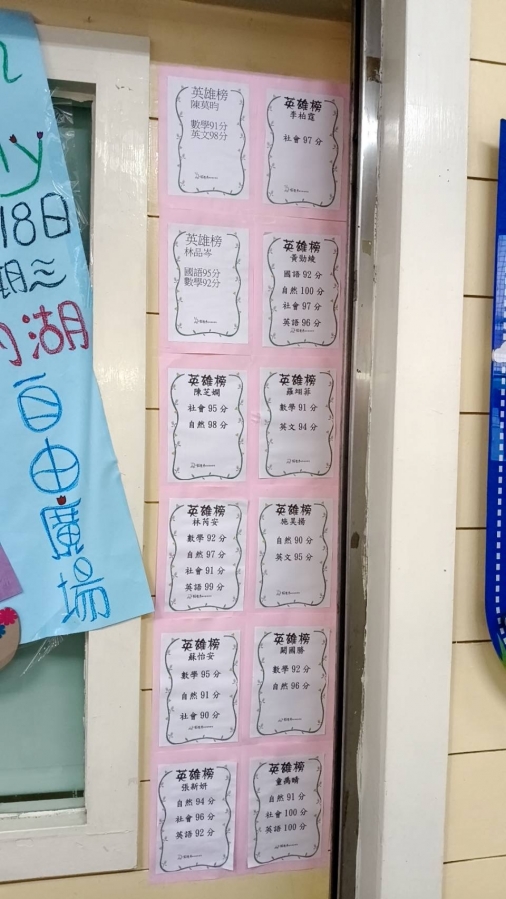 18日
湖
自由廣場
英雄榜
陳莫昀
數學91分
英文98分
英雄榜
李柏霆
社會 97 分
英雄榜
林品岑
國語95分
數學92分
英雄榜
黃勁綾
國語 92 分
自然 100 分
社會 97 分
英語 96 分
英雄榜
陳芝嫻
社會 95 分
自然 98 分
英雄榜
羅翊菲
數學 91 分
英文 94 分
英雄榜
林芮安
數學 92 分
自然 97 分
社會 91 分
英語 99 分
英雄榜
施昊揚
自然 90 分
英文 95 分
英雄榜
蘇怡安
數學 95 分
自然 91 分
社會 90 分
英雄榜
闕國勝
數學 92 分
自然 96 分
英雄榜
張新妍
自然 94 分
社會 96 分
英語 92 分
英雄榜
童禹晴
自然 91 分
社會 100 分
英語 100 分